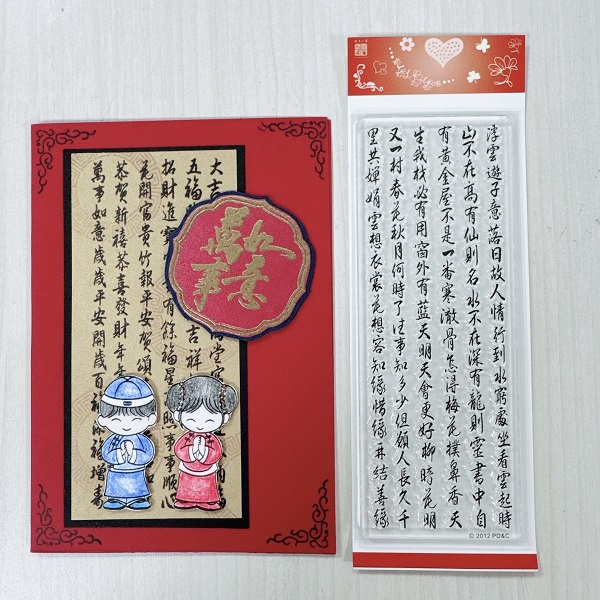 大吉
五福
招財進寶
花開富貴竹報平安賀頌
恭賀新禧恭喜發財年
萬事如意歲歲平安開歲百福添福增壽
吉祥
有餘福星
事事順心
萬事
如意
浮雲遊子意落日故人情行到水窮處坐看雲起時
山不在高有仙則名水不在深有龍則靈書中自
有黃金屋不是一番寒澈骨怎得梅花撲鼻香天
生我材必有用窗外有藍天明天會更好柳暗花明
又一村春花秋月何時了往事知多少但願人長久千
里共嬋娟雲想衣裳花想容知緣惜緣并結善緣
© 2012 PD&C